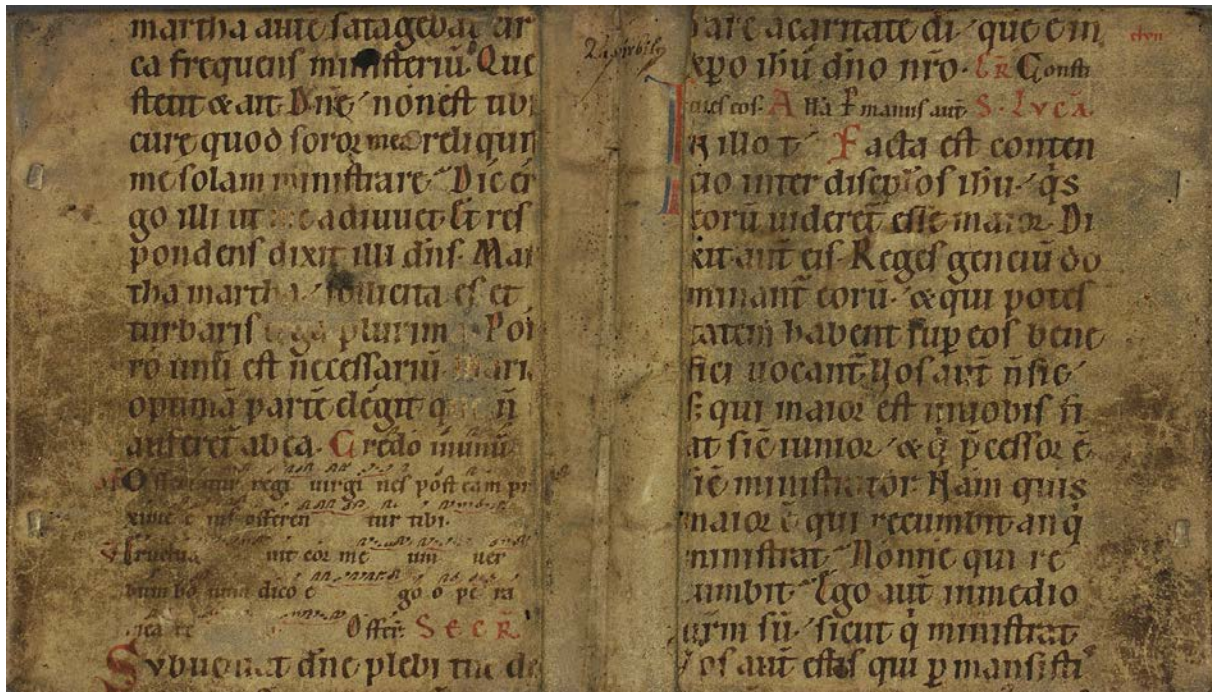 martha aut̄ satagebat cir
ca frequens ministeriū. Que
stetit & ait. Dn̄e non est tibi
cure quod soror mea reliquit
me solam ministrare. Dic er
go illi ut me adiuuet Et res
pondens dixit illi dn̄s. Mar
tha martha sollicita es et
turbaris erga plurima Por
ro unū est necessariū. Maria
optimā partē elegit que n̄
auferet̄ ab ea. Credo in unū
Offerentur regi uirgines post eam pro
xime eius offeren tur tibi.
Eructua uit cor me um uer
bum bonum dico e go o pe ra
mea re Offer. SECR
Subueniat dn̄e plebi tue de
rare a caritate di. que ē in
xp̄o ihu dn̄o nr̄o. GR Consti
tues eos. Alla P manus aut̄ S. LVCA.
In illo t̄. Facta est conten
cio inter discip̄los ihu. q̄s
eorū uideret̄ esse maior. Di
xit aut̄ eis. Reges genciū do
minant̄ eorū. & qui potes
tatem habent sup̄ eos bene
fici uocant̄. Vos aut̄ n̄ sic
s; qui maior est in uobis fi
at sic̄ iunior & q̄ p̄cessor ē
sic̄ ministrator. Nam quis
maior ē qui recumbit an q̄
ministrat Nonne qui re
cumbit Ego aut̄ in medio
urm sū sicut q̄ ministrat
Vos aut̄ estis qui p̄mansisti